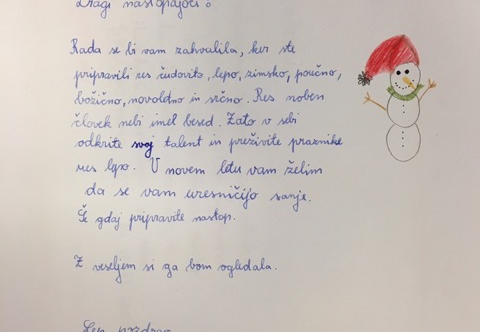 Dragi nastopajoči:
Rada se bi vam zahvalila, ker ste
pripravili res čudovito, lepo, zimsko, poučno,
božično, novoldno in srčno. Res noben
človek nebi imel besed. Zato v sebi
odkrite svoj talent in preživite praznike
res lepo. V novem letu vam želim
da se vam uresničijo sanje.
Še gdaj pripravite nastop.
Z veseljem si ga bom ogledala.
Lep pozdrav